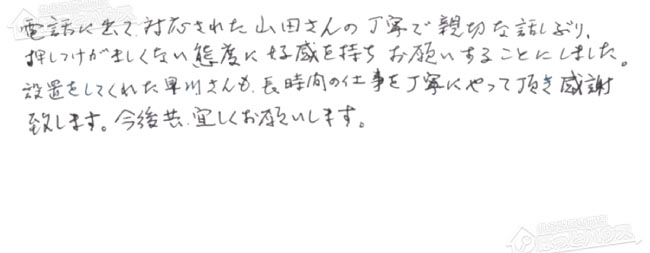 電話に出て対応された山田さんの丁寧で親切な話しぶり、
押しつけがましくない態度に好感を持ちお願いすることにしました。
設置をしてくれた早川さんも、長時間の仕事を丁寧にやって頂き感謝
致します。今後共、宜しくお願いします。